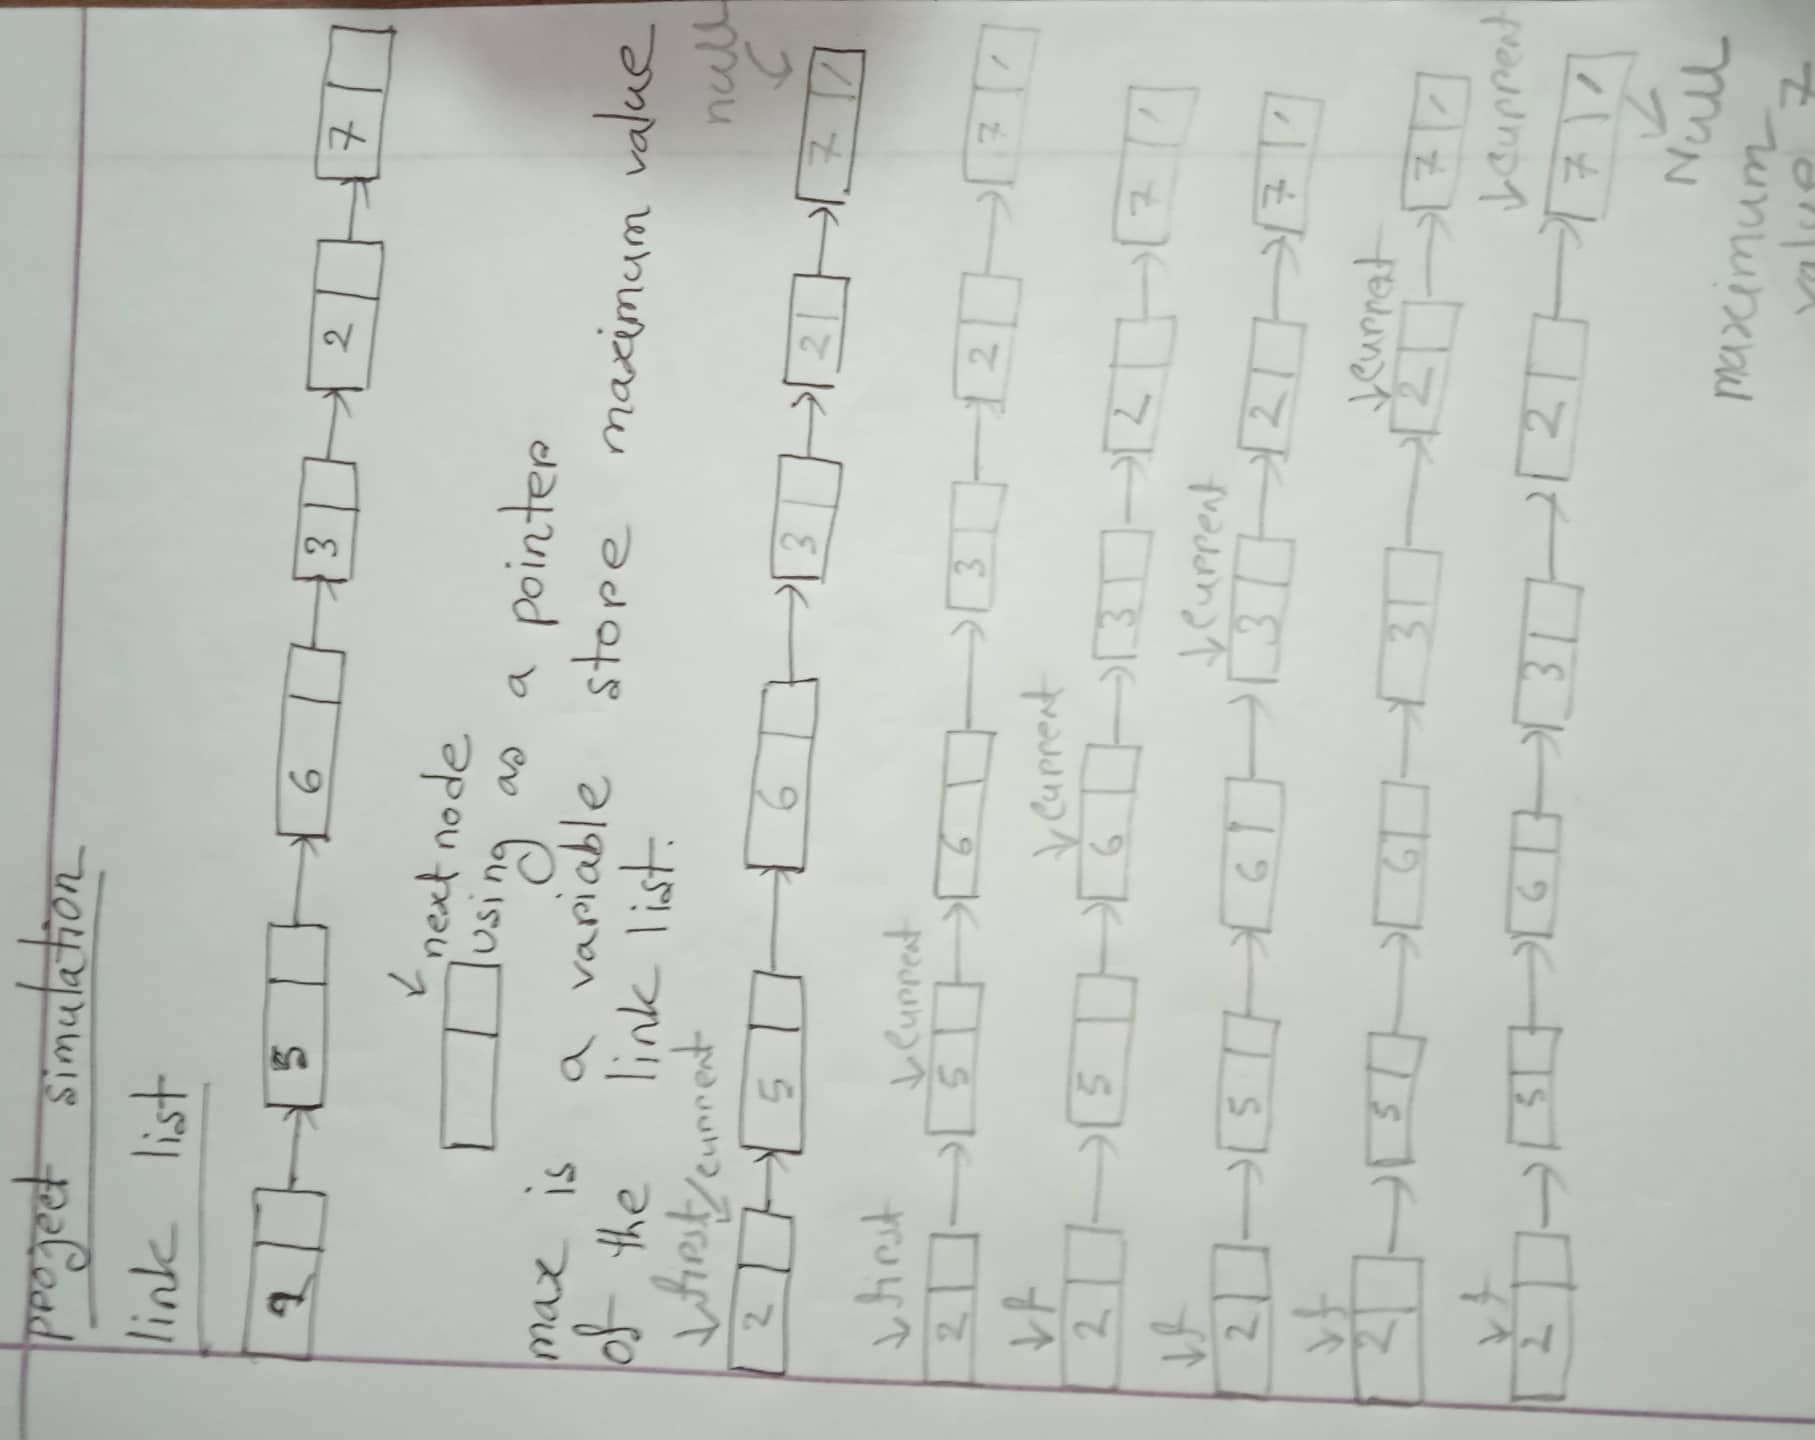 project simulation
link list
5 6 3 2 7
next node
using as a pointer
max is a variable store maximum value
of the link list.
first/current null
2 5 6 3 2 7
first current
2 5 6 3 2 7
f current
2 5 6 3 2 7
f current
2 5 6 3 2 7
f current
2 5 6 3 2 7
f current
2 5 6 3 2 7
Null
maximum
value 7